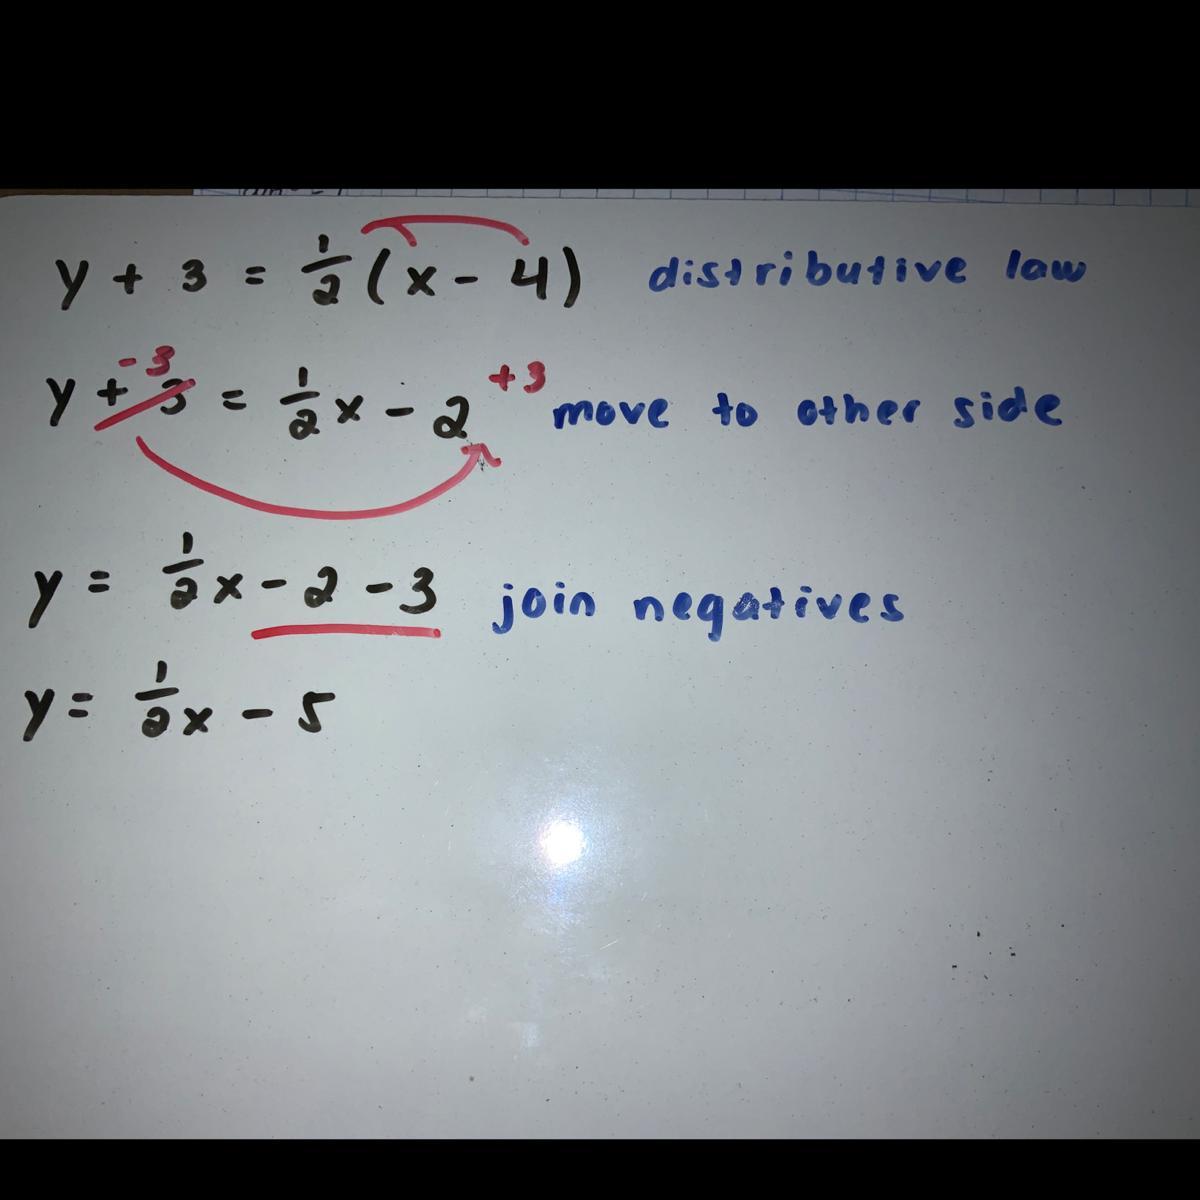 y + 3 = 1/2 (x - 4) distributive law
-3 +3
y + 3 = 1/2 x - 2 move to other side
y = 1/2 x - 2 - 3 join negatives
y = 1/2 x - 5